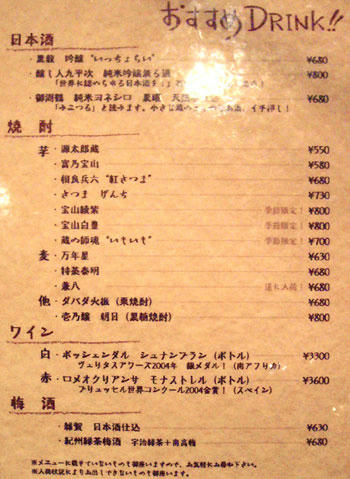 おすすめ DRINK!!
日本酒
・黒龍 吟醸 "いっちょらい" ¥680
・醸し人九平次 純米吟醸 ¥800
「世界に認められる日本酒を」と
・御湖鶴 純米ヨネシロ ¥680
「みこつる」と読みます。小さな蔵の イチ押し!
焼酎
芋・源太郎蔵 ¥550
・富乃宝山 ¥580
・相良兵六 "紅さつま" ¥680
・さつま げんち ¥730
・宝山綾紫 季節限定! ¥800
・宝山白豊 季節限定! ¥800
・蔵の師魂 "いもいも" 季節限定! ¥700
麦・万年星 ¥630
・特蒸泰明 ¥680
・兼八 遂に入荷! ¥680
他・ダバダ火振 (栗焼酎) ¥680
・壱乃醸 朝日 (黒糖焼酎) ¥800
ワイン
白・ボッシェンダル シュナンブラン (ボトル) ¥3300
ヴェリタスアワーズ2004年 銀メダル! (南アフリカ)
赤・ロメオクリアンサ モナストレル (ボトル) ¥3600
ブリュッセル世界コンクール2004金賞! (スペイン)
梅酒
・雑賀 日本酒仕込 ¥630
・紀州緑茶梅酒 宇治緑茶+南高梅 ¥680
※メニューに載せていないものも御座いますので、お気軽にお尋ね下さい。
※入荷状況によりお出しできないものも御座います。